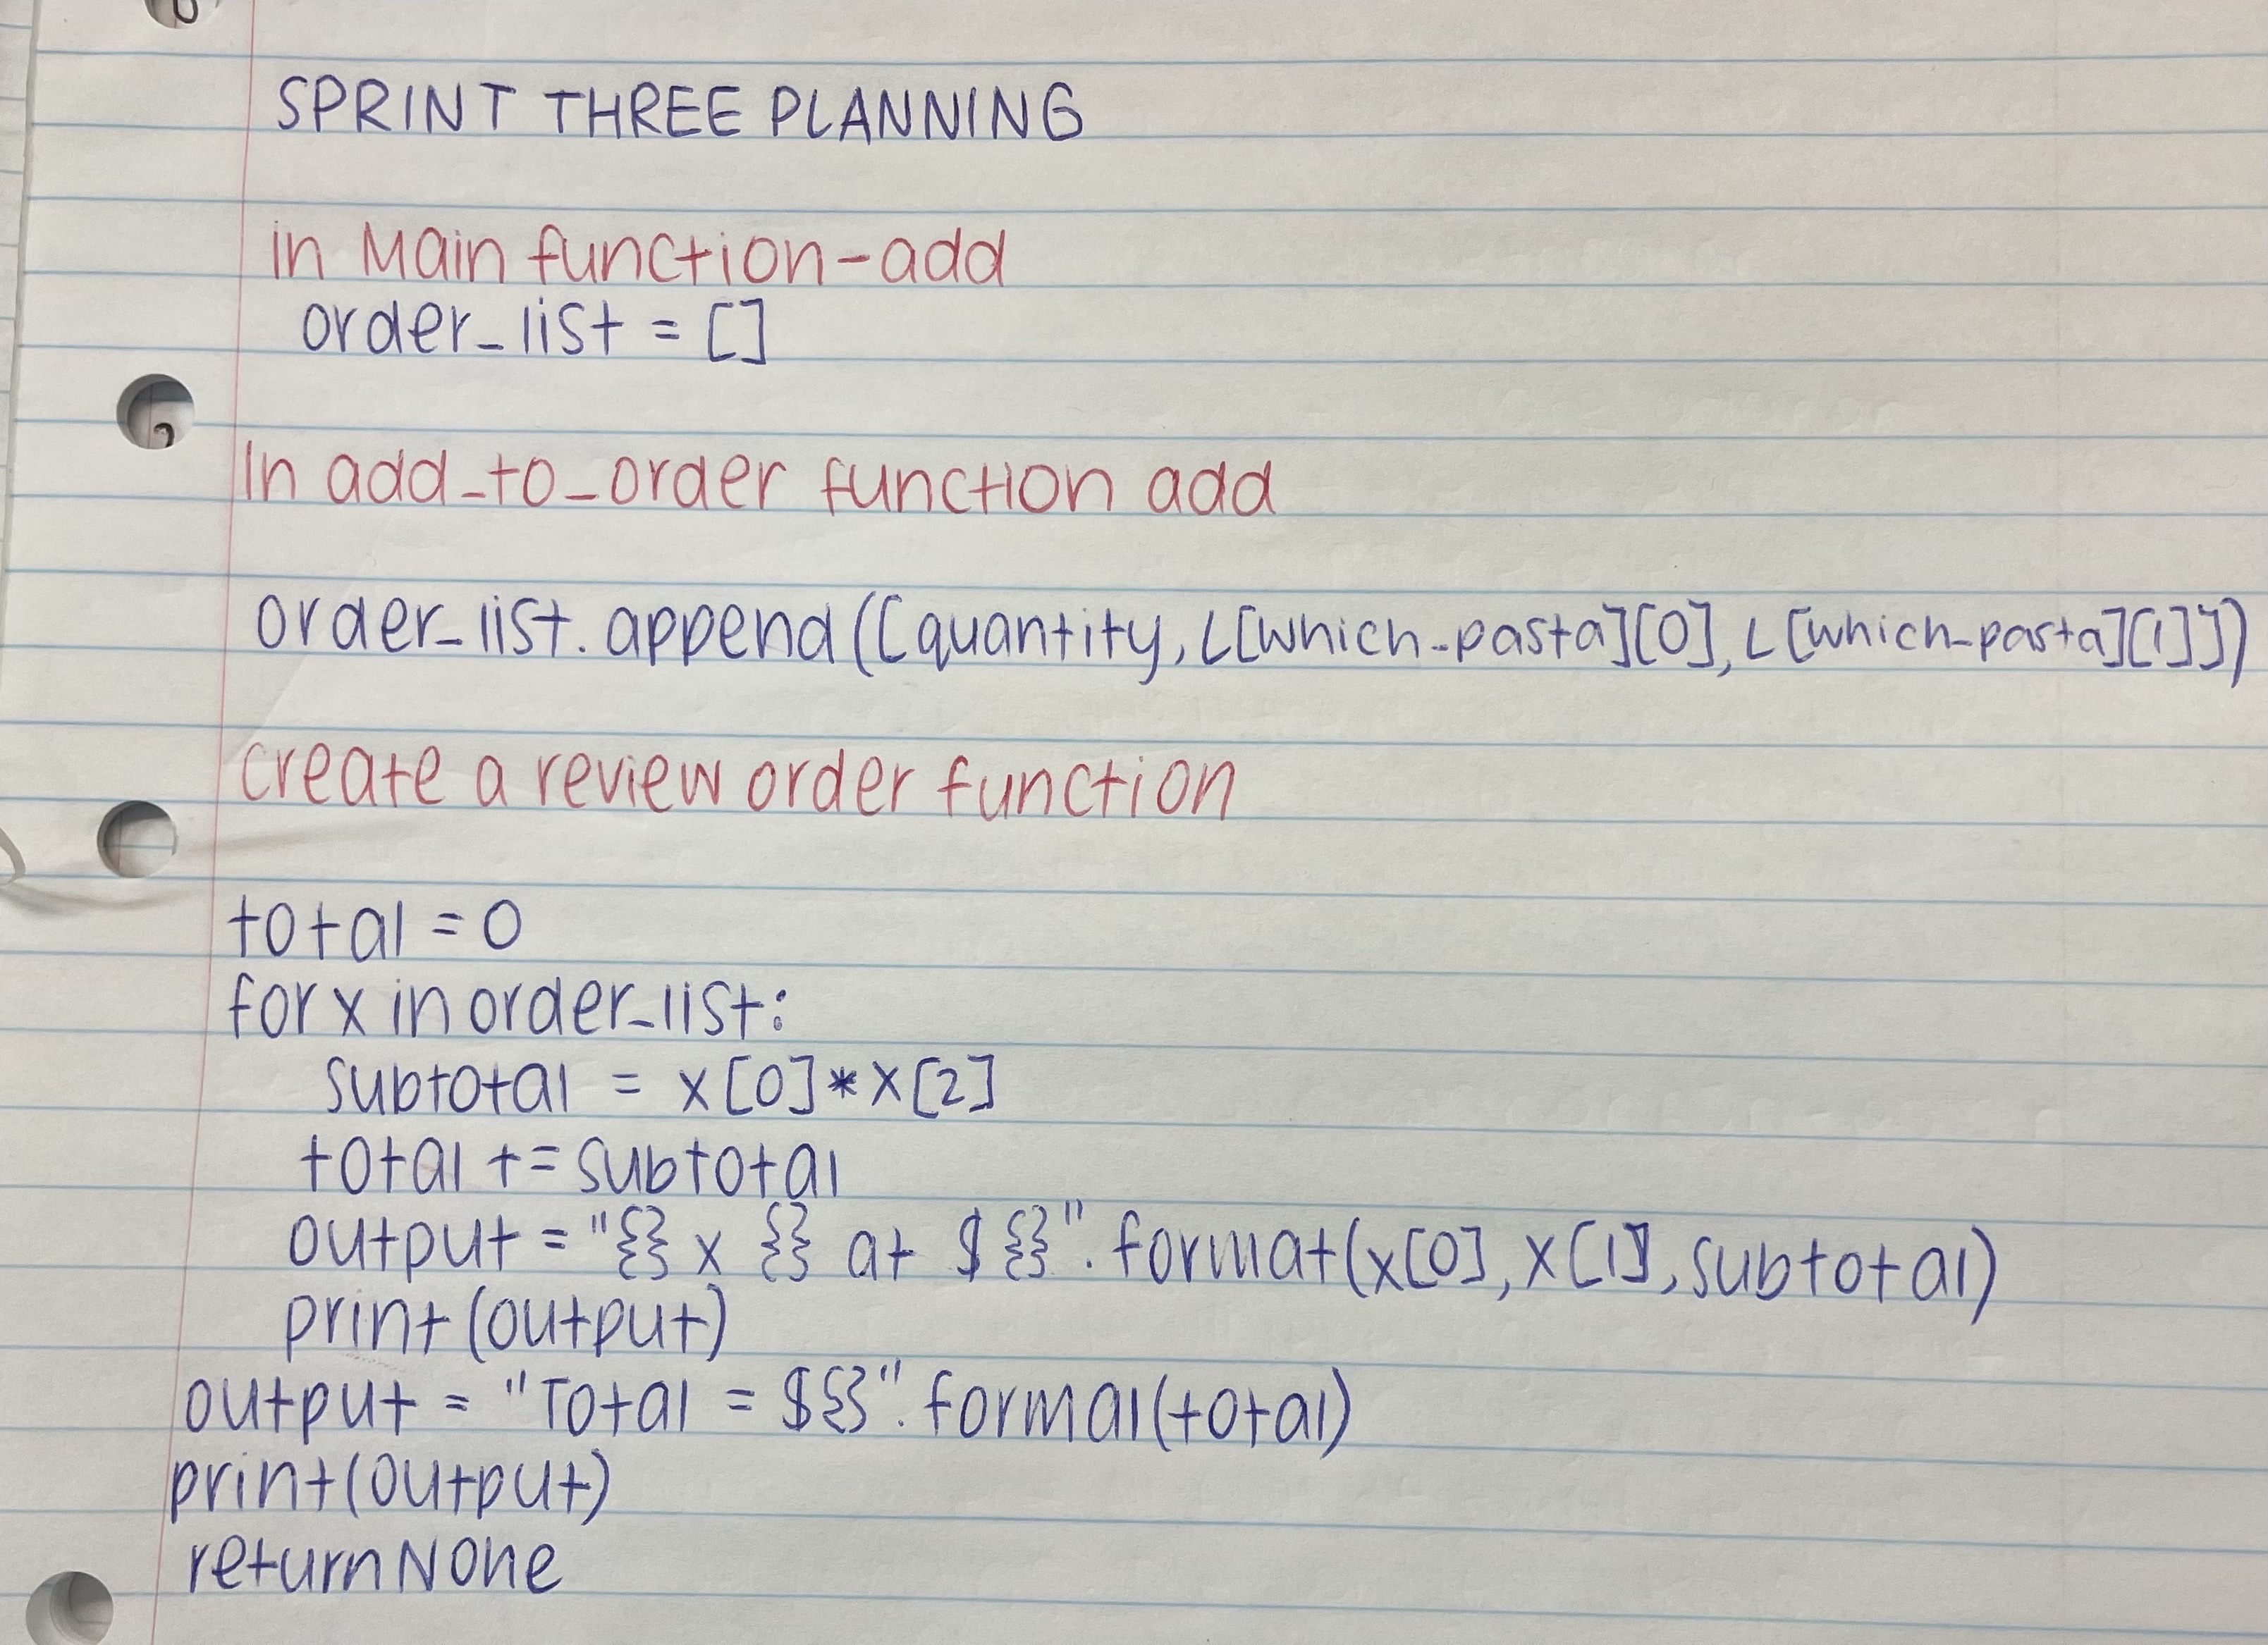 SPRINT THREE PLANNING
in Main function-add
order_list = []
In add_to_order function add
order_list.append([quantity, L[which_pasta][0], L[which_pasta][1]])
create a review order function
total = 0
for x in order_list:
subtotal = x[0]*x[2]
total += subtotal
output = "{} x {} at ${}".format(x[0], x[1], subtotal)
print(output)
output = "Total = ${}".formal(total)
print(output)
return None